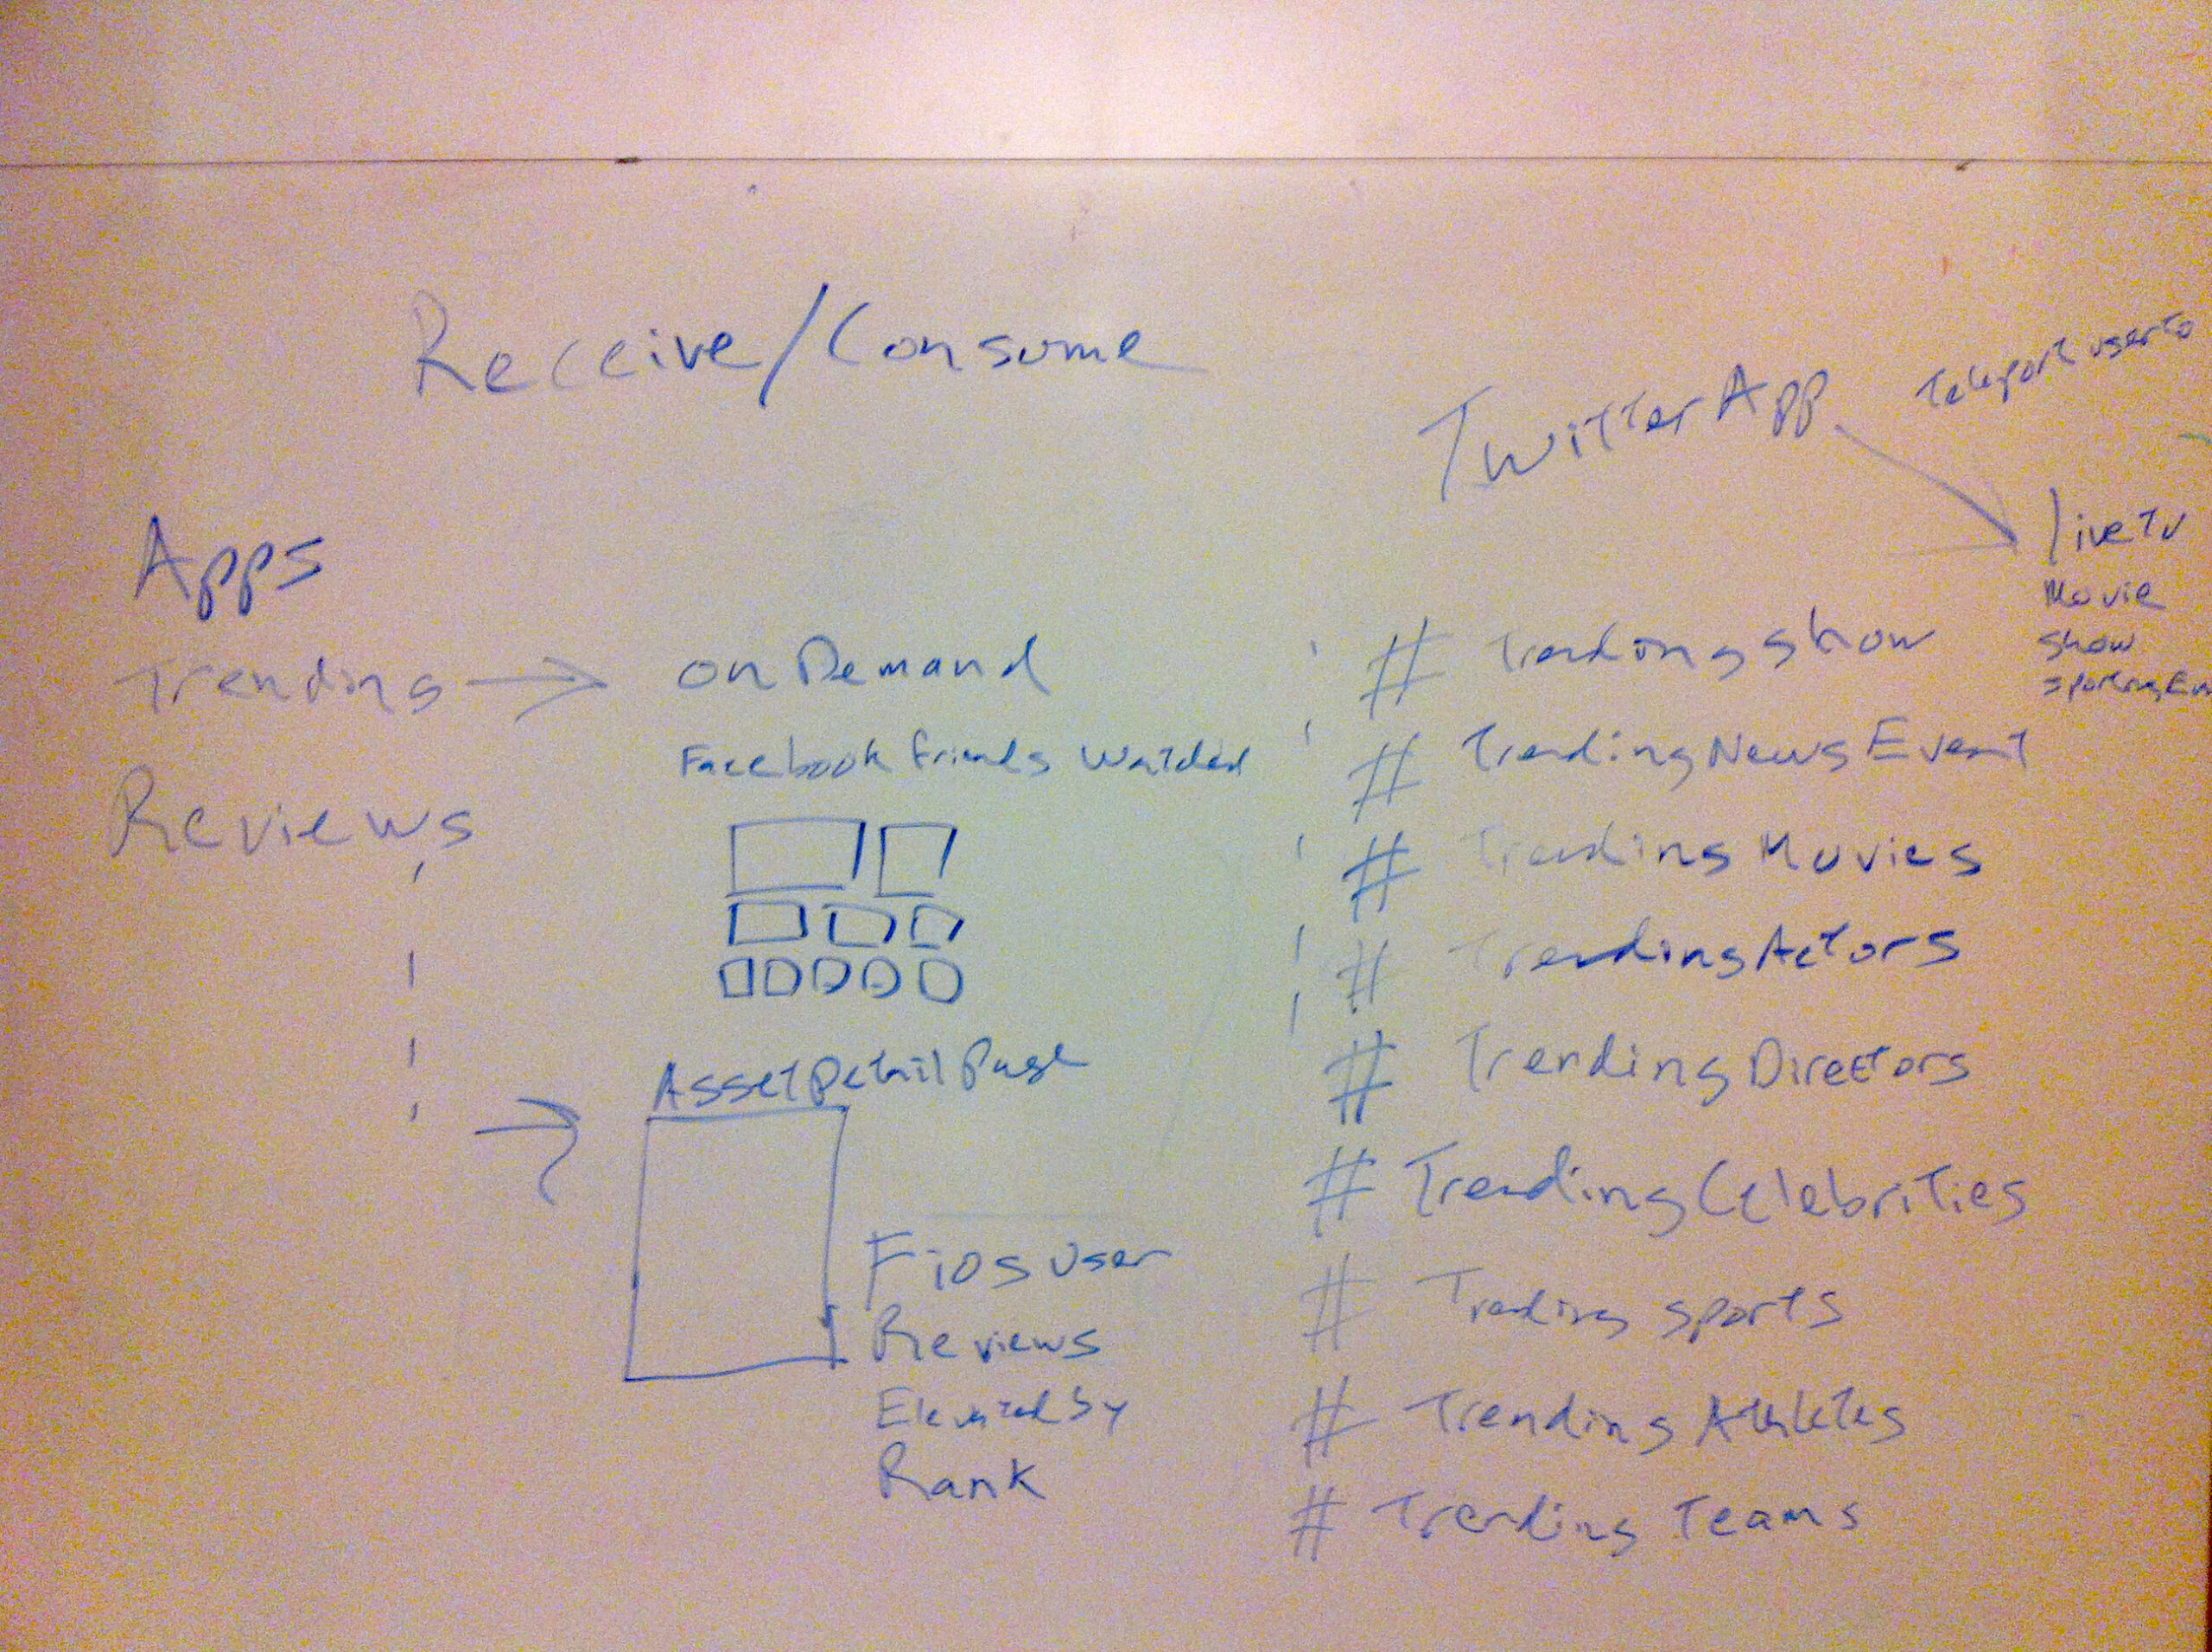 Receive/Consume
Apps
Trending
Reviews
onDemand
Facebook friends Watched
Asset Detail Page
Fios user
Reviews
Elevated by
Rank
Twitter App
Teleport user to
live TV
Movie
show
# Trending show
# Trending News Event
# Trending Movies
# Trending Actors
# Trending Directors
# Trending Celebrities
# Trending sports
# Trending Athletes
# Trending Teams